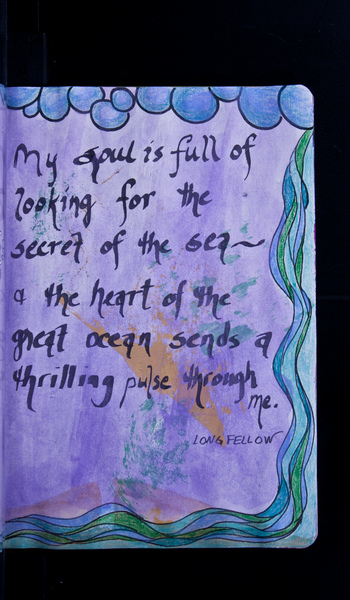 My soul is full of
looking for the
secret of the sea~
& the heart of the
great ocean sends a
thrilling pulse through
me.
LONGFELLOW